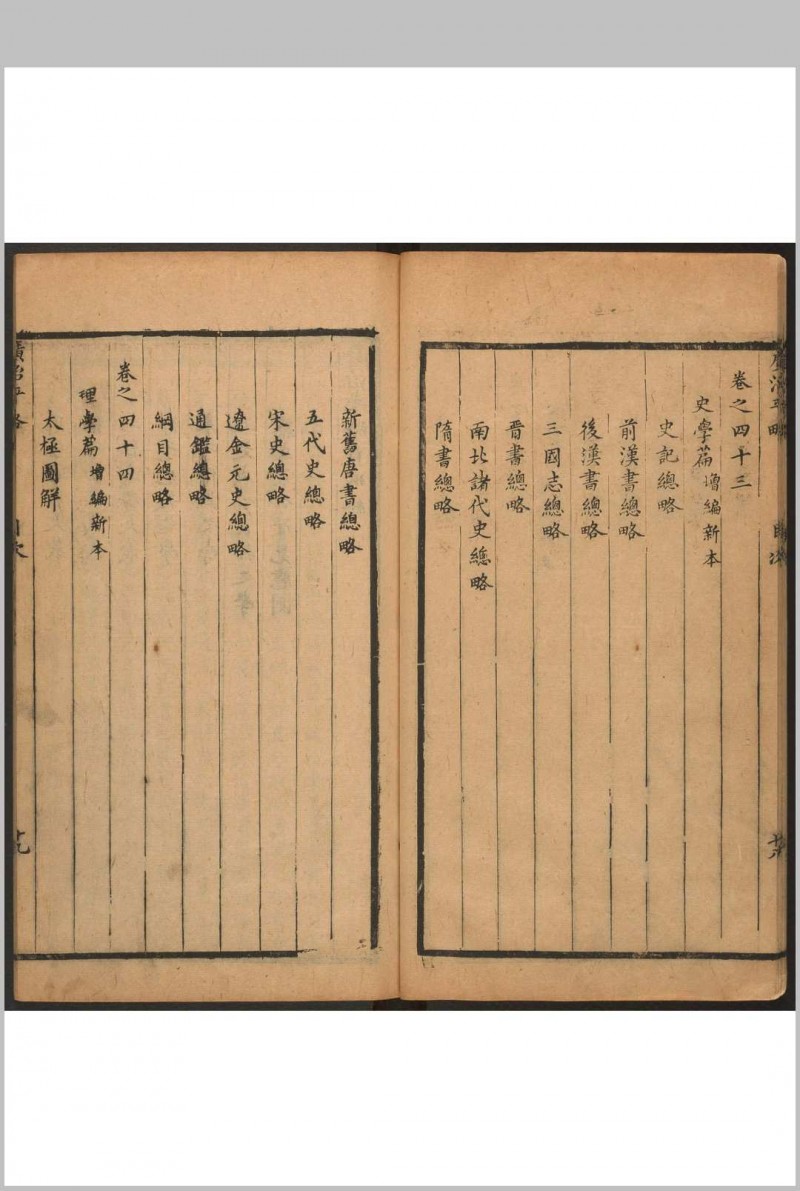 卷之四十三
史學篇 增編新本
史記總略
前漢書總略
後漢書總略
三國志總略
晉書總略
南北諸代史總略
隋書總略
新舊唐書總略
五代史總略
宋史總略
遼金元史總略
通鑑總略
綱目總略
卷之四十四
理學篇 增編新本
太極圖解